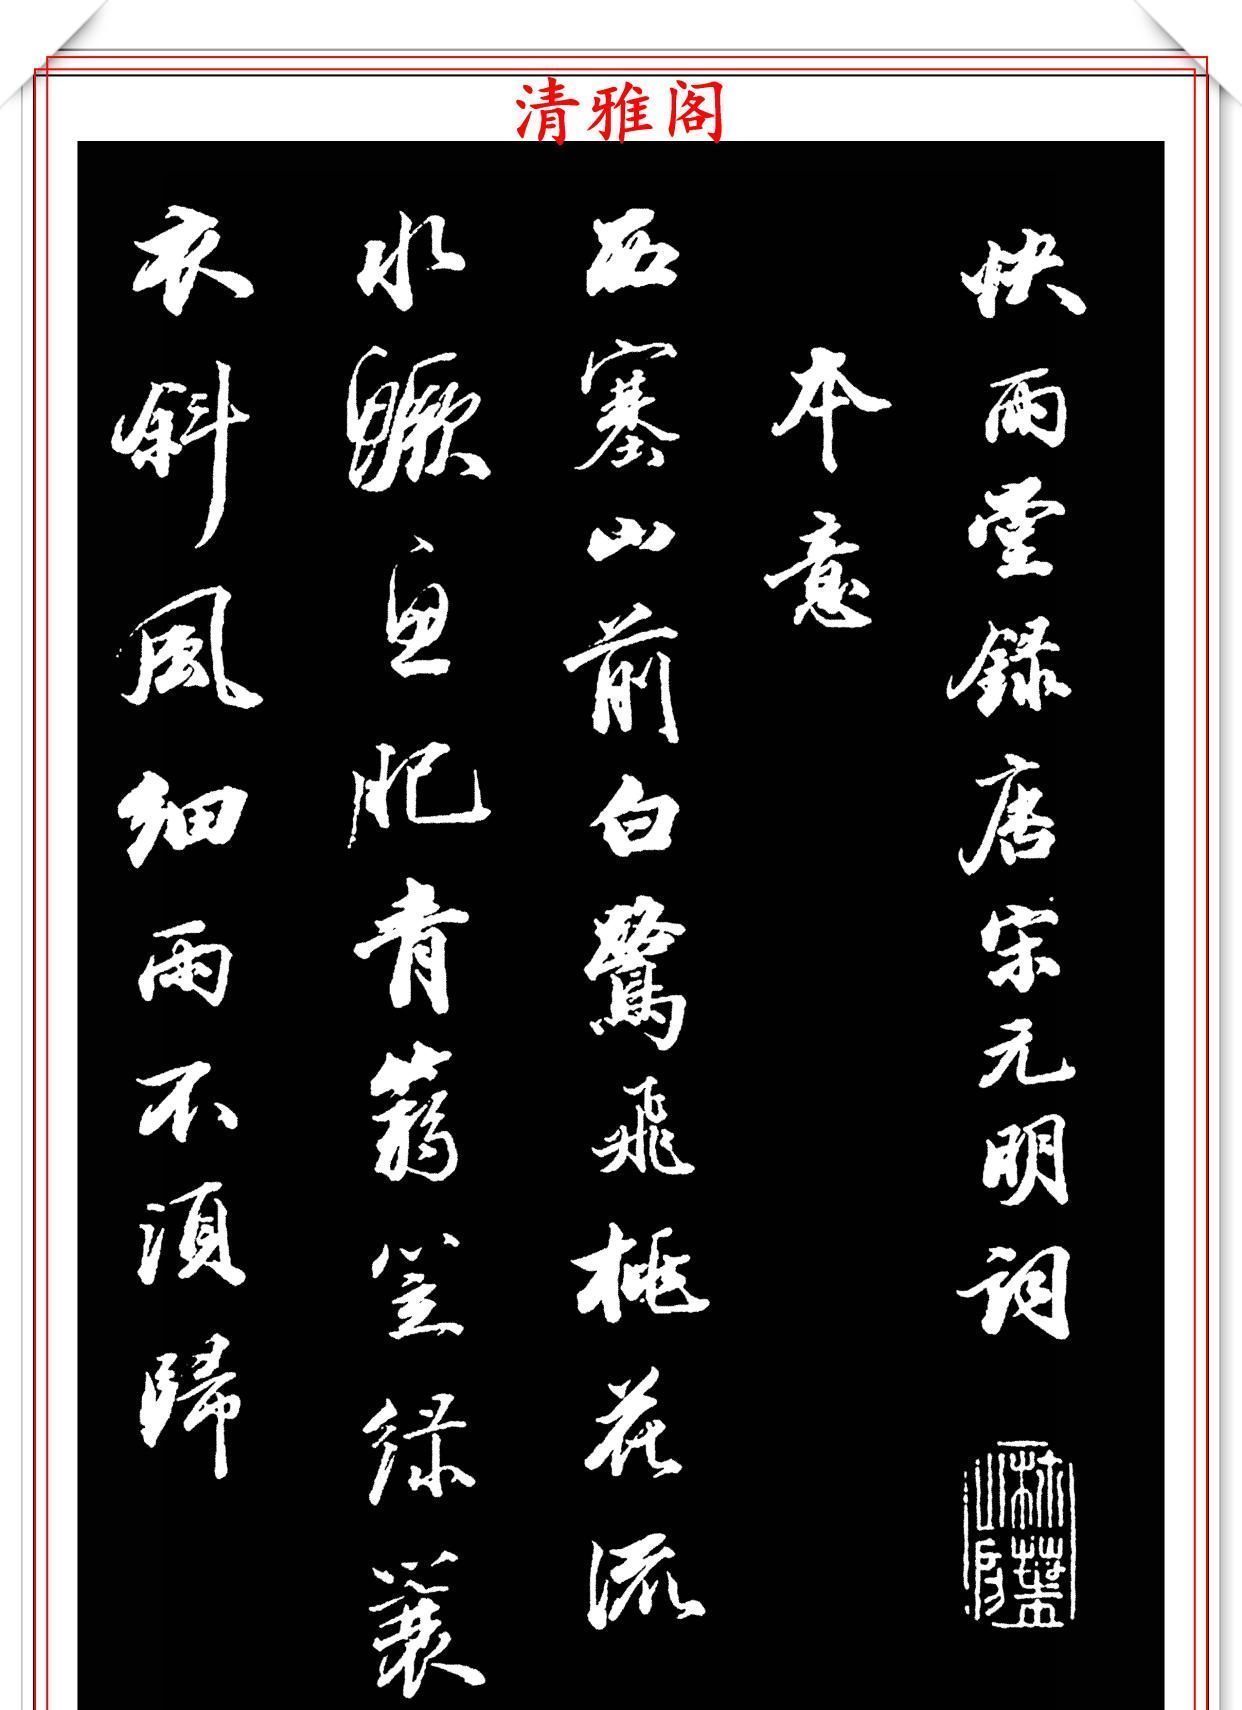 清雅阁
快雨堂録唐宋元明詞
本意
西塞山前白鷺飛桃花流
水鱖魚肥青蒻笠緑蓑
衣斜風細雨不須歸